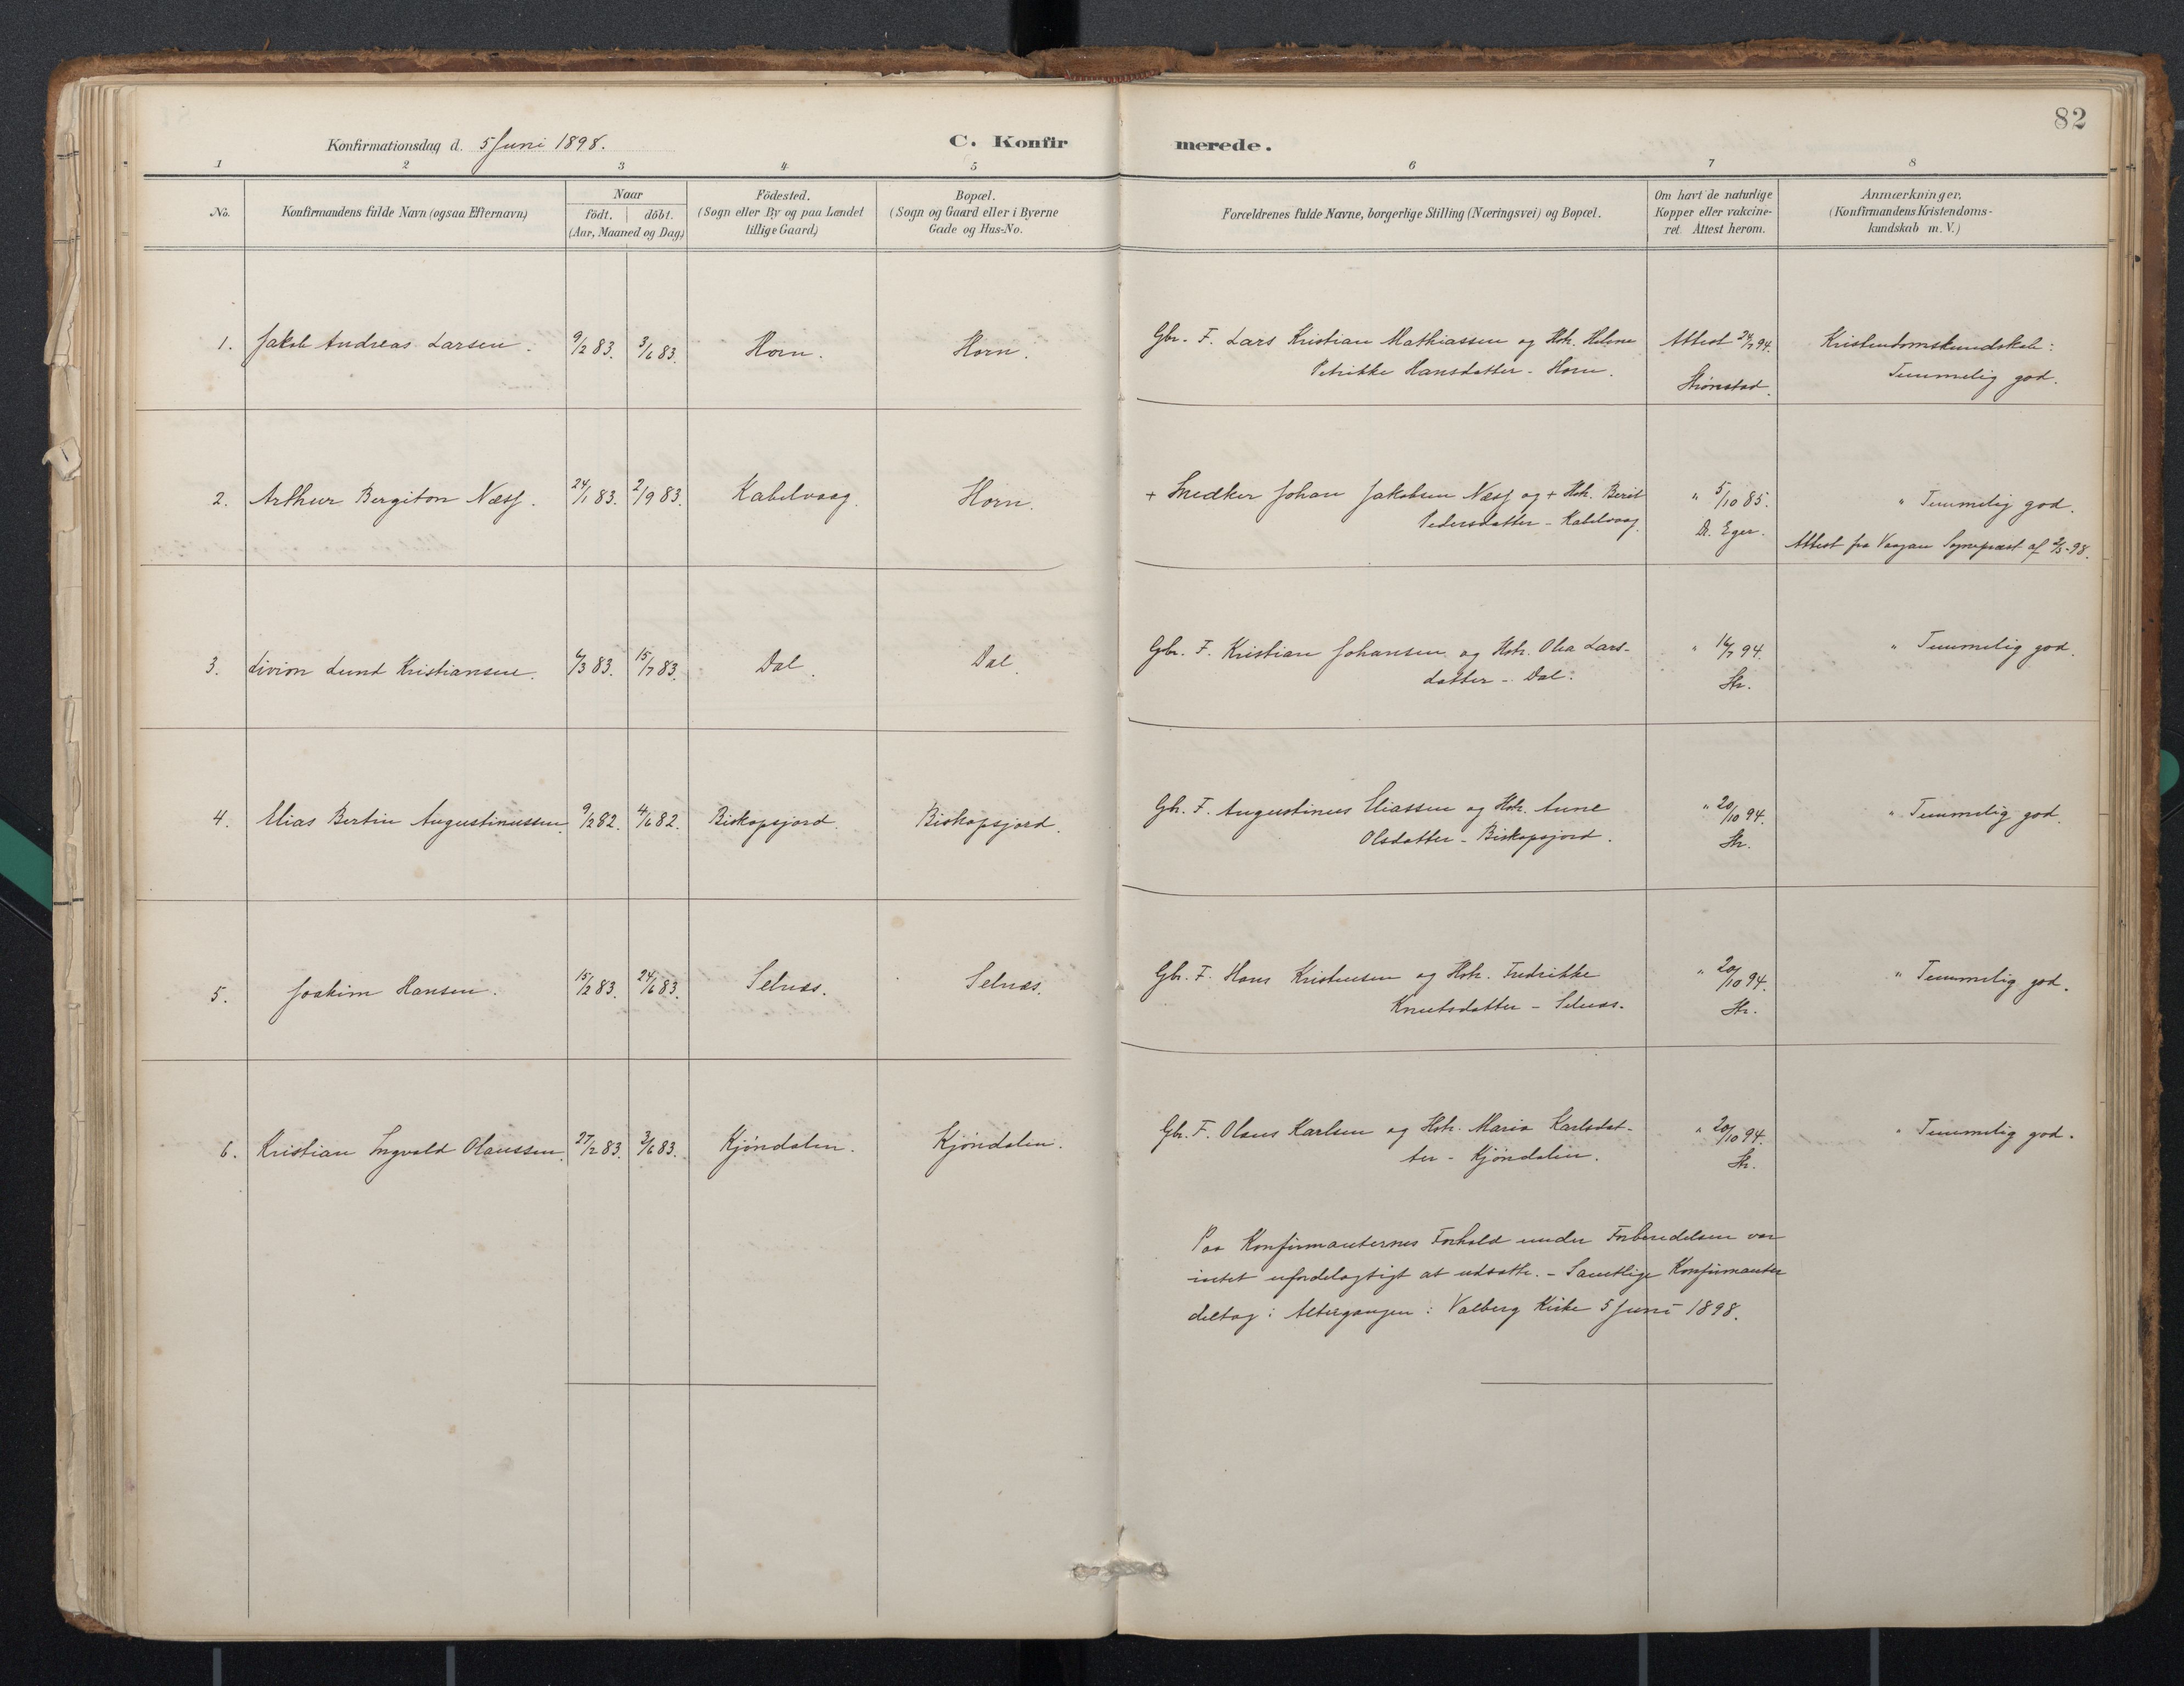 82
Konfirmationsdag d. 5 Juni 1898.
C. Konfirmerede.
1 2 3 4 5 6 7 8
No.
Konfirmandens fulde Navn (ogsaa Efternavn)
Naar
födt. | döbt.
(Aar, Maaned og Dag)
Födested.
(Sogn eller By og paa Landet
tillige Gaard)
Bopæl.
(Sogn og Gaard eller i Byerne
Gade og Hus-No.
Forældrenes fulde Navne, borgerlige Stilling (Næringsvei) og Bopæl.
Om havt de naturlige
Kopper eller vakcine-
ret. Attest herom.
Anmærkninger.
(Konfirmandens Kristendoms-
kundskab m. V.)
1. Jakob Andreas Larsen. 9/2 83. 3/6 83. Horn. Horn. Gbr. F. Lars Kristian Mathiassen og Hstr. Helene Attest 94. Kristendomskundskab:
Petrikke Hansdatter - Horn. Strönstad. Temmelig god.
2. Arthur Bergiton Næss. 24/1 83. 2/9 83. Kabelvaag. Horn. + Snedker Johan Jakobsen Næss og + Hstr. Berit " 5/10 85. " Temmelig god.
Pedersdatter - Kabelvaag. Dr. Eger. Attest fra Vaagan Sognepræst af 2/5-98.
3. Livion Lund Kristiansen. 6/3 83. 15/7 83. Dal. Dal. Gbr. F. Kristian Johansen og Hstr. Olea Lars- " 16/7 94. " Temmelig god.
datter - Dal. Str.
4. Elias Bertin Augustinussen. 9/2 82. 4/6 82. Biskopsjord. Biskopsjord. Gbr. F. Augustinus Eliassen og Hstr. Anne " 20/10 94. " Temmelig god.
Olsdatter - Biskopsjord. Str.
5. Joakim Hansen. 15/2 83. 24/6 83. Selnæs. Selnæs. Gbr. F. Hans Kristensen og Hstr. Fredrikke " 20/10 94. " Temmelig god.
Knutsdatter - Selnæs. Str.
6. Kristian Ingvald Olaussen. 27/2 83. 3/6 83. Kjöndalen. Kjöndalen. Gbr. F. Olaus Karlsen og Hstr. Maria Karlsdat- " 20/10 94. " Temmelig god.
ter - Kjöndalen. Str.
Paa Konfirmanternes Forhold under Forberedelsen var
intet ufordelagtigt at udsætte. - Samtlige Konfirmanter
deltog i Altergangen i Valberg Kirke 5 Juni 1898.